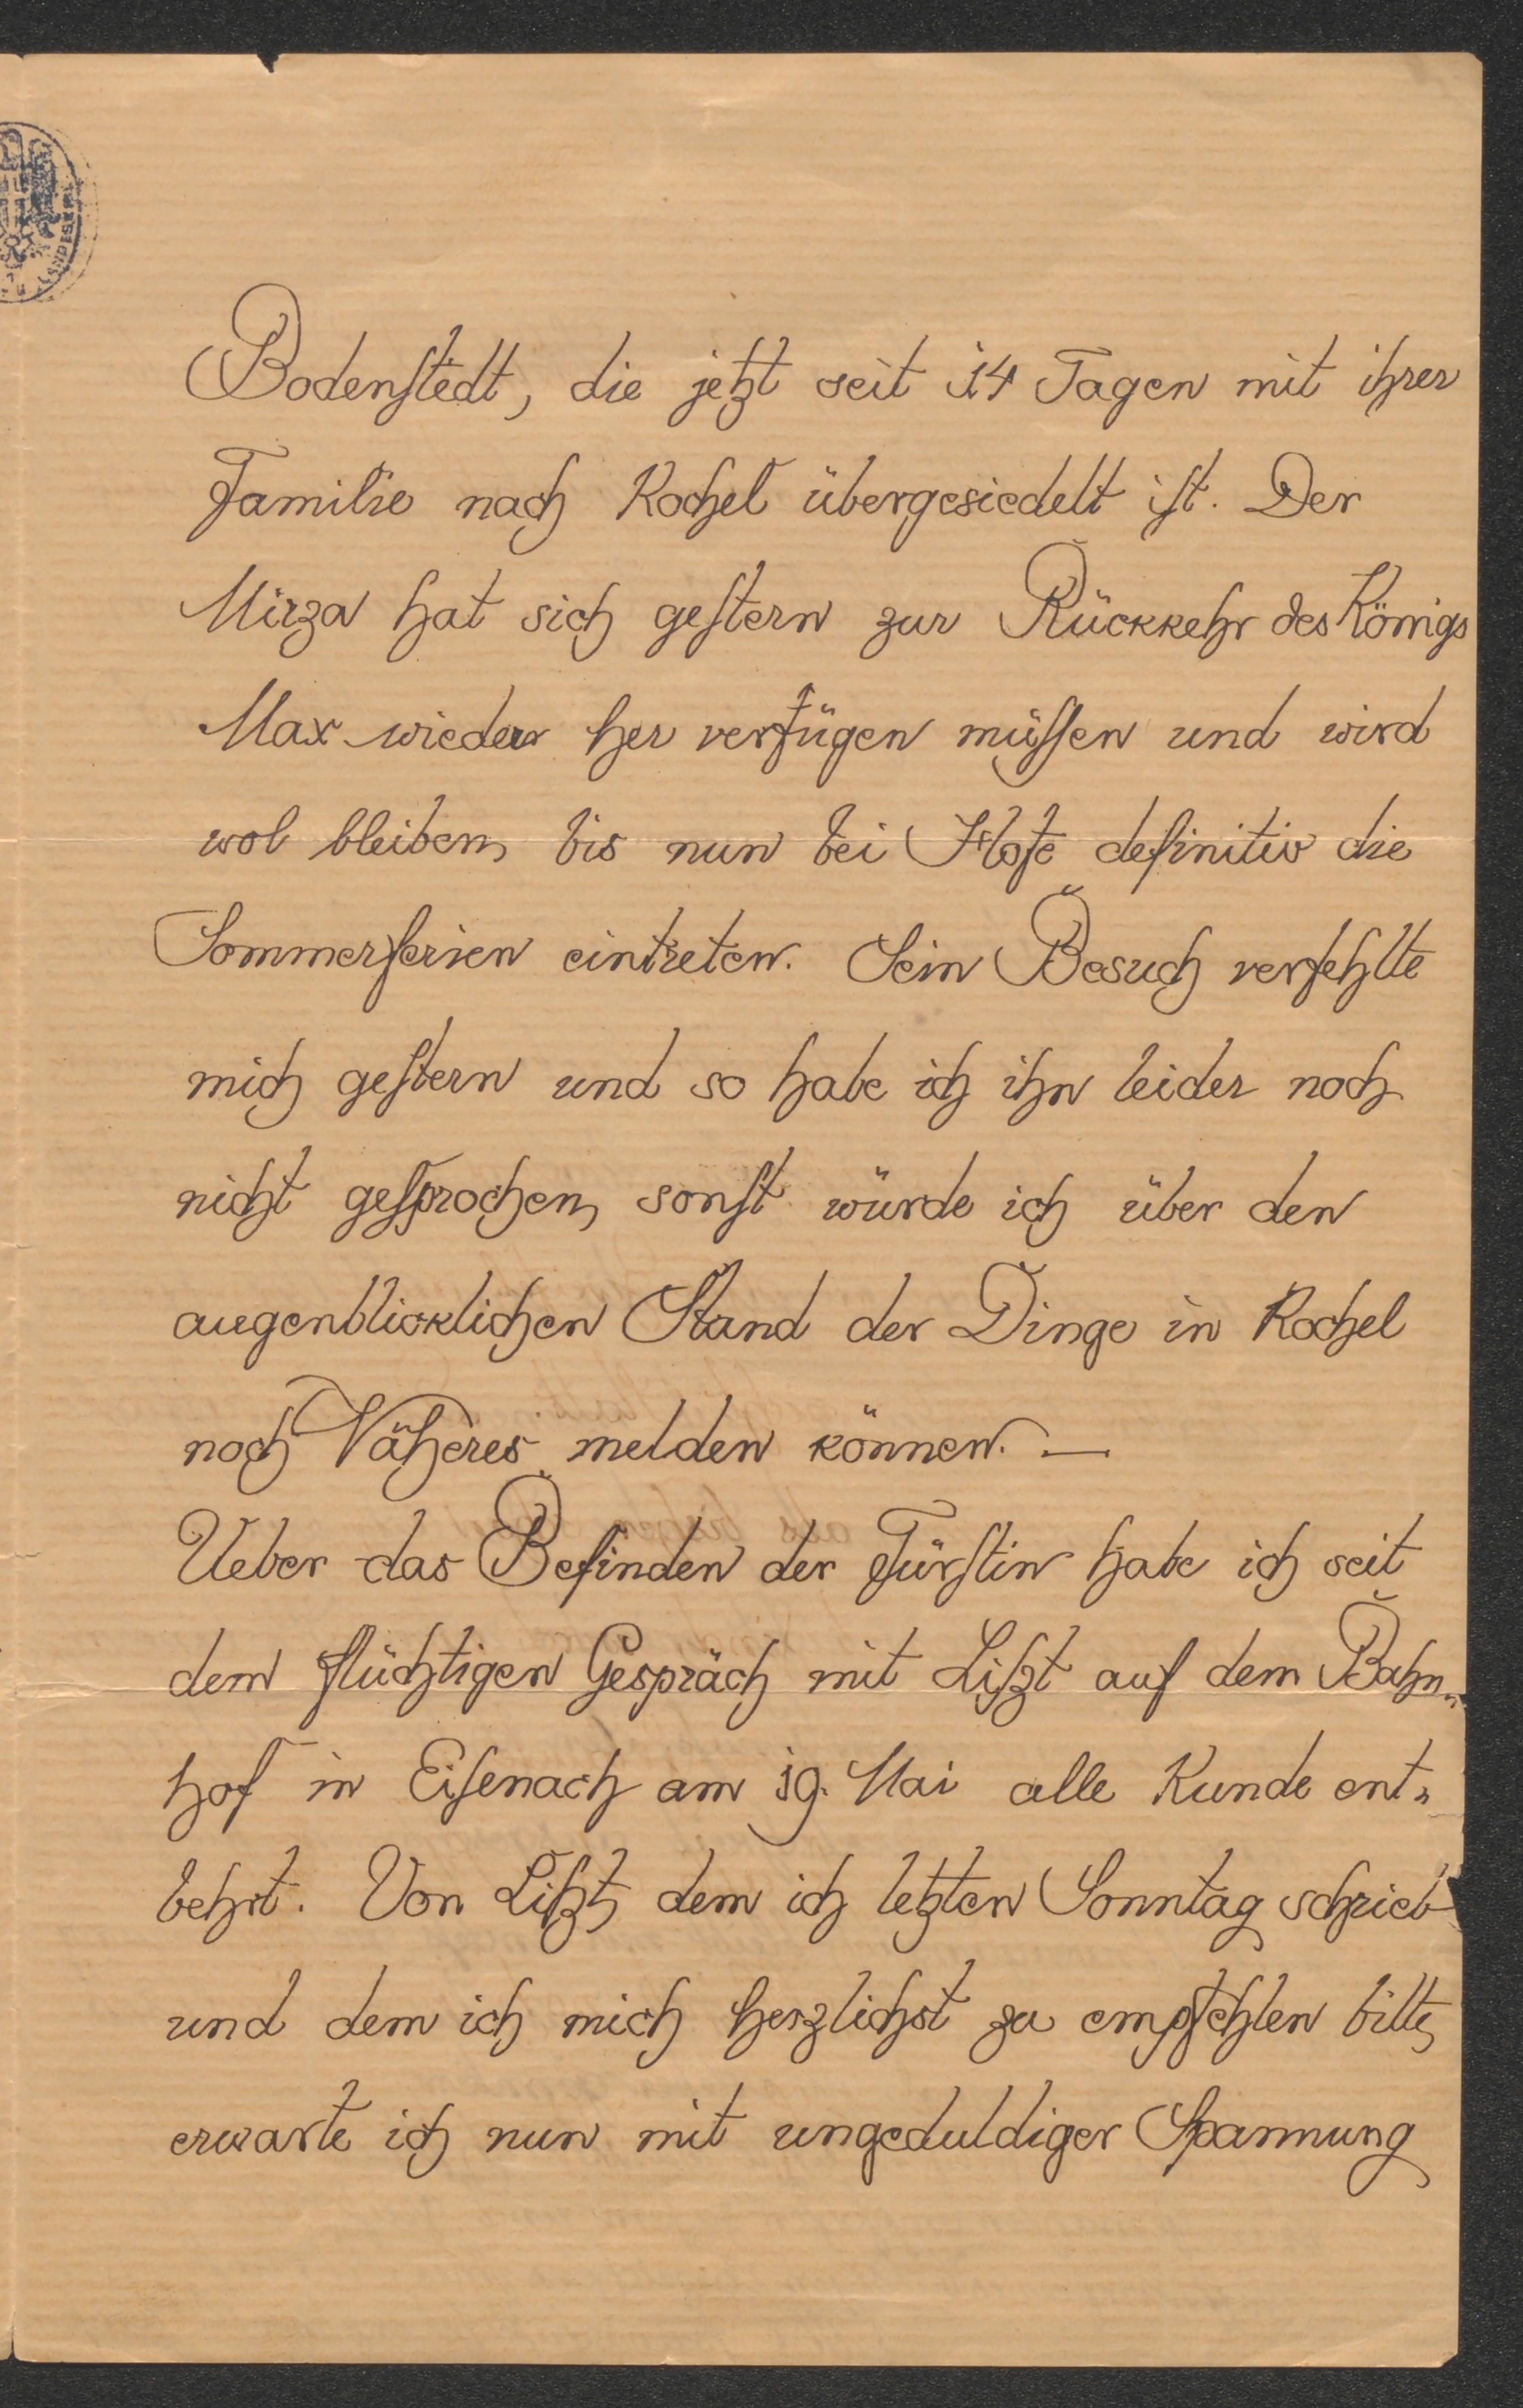 Bodenstedt, die jetzt seit 14 Tagen mit ihrer
Familie nach Kochel übergesiedelt ist. Der
Mirza hat sich gestern zur Rückkehr des Königs
Max wieder her verfügen müssen und wird
wol bleiben, bis nun bei Hofe definitiv die
Sommerferien eintreten. Sein Besuch verfehlte
mich gestern und so habe ich ihn leider noch
nicht gesprochen, sonst würde ich über den
augenblicklichen Stand der Dinge in Kochel
noch Näheres melden können. —
Ueber das Befinden der Fürstin habe ich seit
dem flüchtigen Gespräch mit Liszt auf dem Bahn-
hof in Eisenach am 19. Mai alle Kunde ent-
behrt. Von Liszt, dem ich letzten Sonntag schrieb
und dem ich mich herzlichst zu empfehlen bitte,
erwarte ich nun mit ungeduldiger Spannung